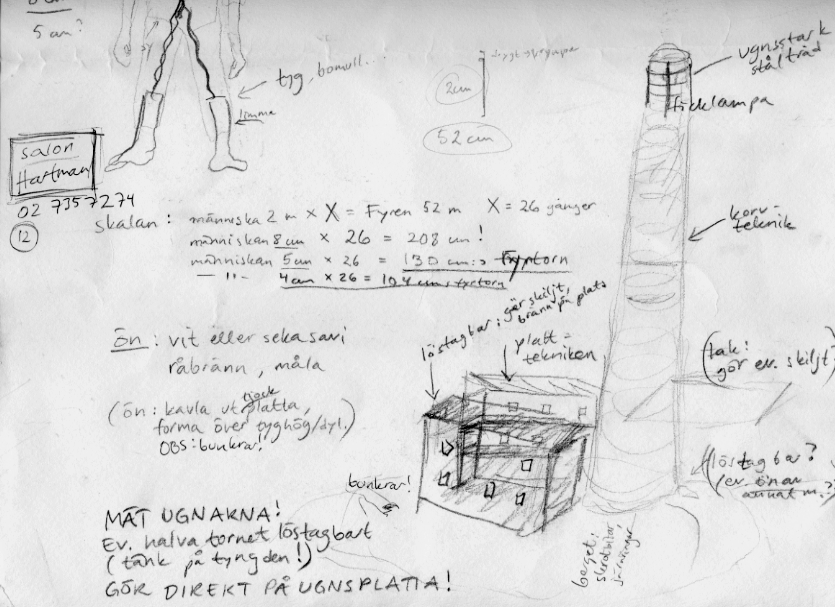 5 cm?
tyg, bomull...
limma
2cm
52 cm
ugnsstark
ståltråd
ficklampa
salon
Hartman
02 7357274
12
skalan: människa 2 m × X = Fyren 52 m X = 26 gånger
människan 8 cm × 26 = 208 cm!
människan 5 cm × 26 = 130 cm:s Fyrtorn
— " — 4 cm × 26 = 104 cm:s fyrtorn
korv-
teknik
ön: vit eller sekasavi
råbränn, måla
(ön: kavla ut tjock platta,
forma över tyghög/dyl.)
OBS: bunkrar!
löstagbar: gör skiljt,
bränn på plats
platt-
tekniken
(tak:
gör ev. skiljt)
(löstagbar?
(ev. ön av
annat m.?)
bunkrar!
MÄT UGNARNA!
Ev. halva tornet löstagbart
(tänk på tyngden!)
GÖR DIREKT PÅ UGNSPLATTA!
berget: